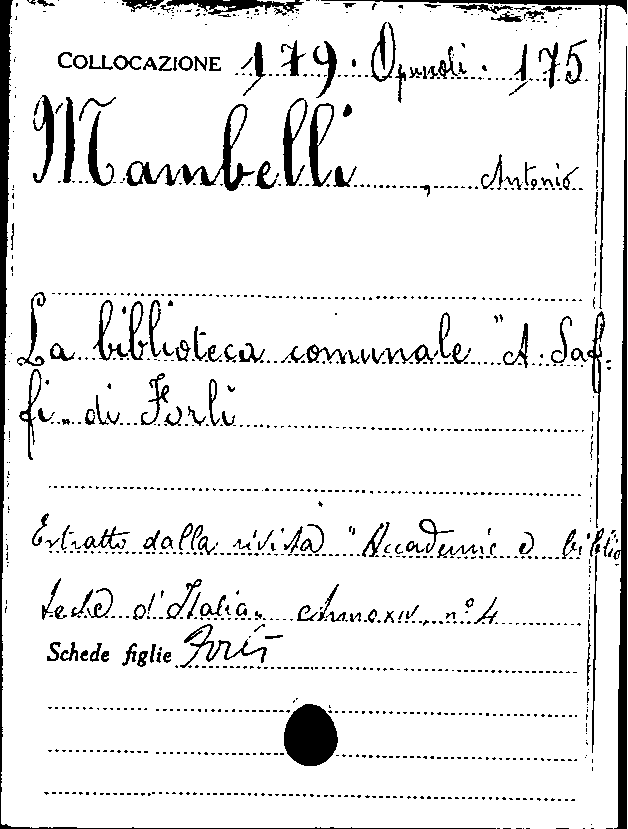 COLLOCAZIONE 179. Opuscoli. 175
Mambelli, Antonio
La biblioteca comunale "A. Saf-
fi" di Forlì
Estratto dalla rivista "Accademie e biblio
teche d'Italia" Anno XIV, n° 4
Schede figlie Forlì